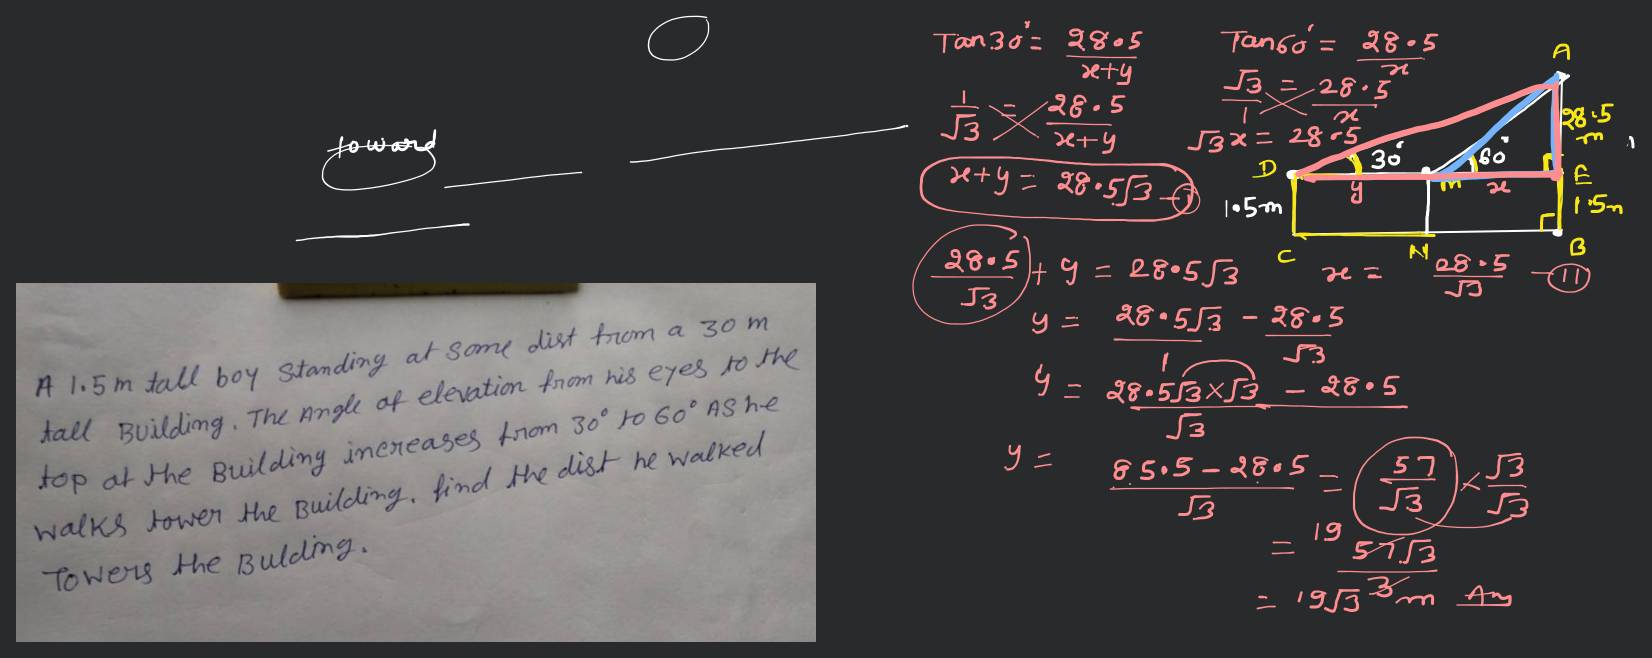 toward
A 1.5m tall boy standing at some dist from a 30 m
tall Building. The Angle of elevation from his eyes to the
top at the Building increases from 30° to 60° AS he
walks tower the Building. find the dist he walked
Towers the Bulding.
Tan30° = 28.5/(x+y)
1/√3 = 28.5/(x+y)
x+y = 28.5√3 - I
Tan60° = 28.5/x
√3/1 = 28.5/x
√3x = 28.5
x = 28.5/√3 - II
A
28.5 m
D 30° 60° E
y m x
1.5m 1.5m
C N B
28.5/√3 + y = 28.5√3
y = 28.5√3/1 - 28.5/√3
y = (28.5√3×√3 - 28.5)/√3
y = (85.5-28.5)/√3 = 57/√3 × √3/√3
= 19 57√3/3
= 19√3 m Ans